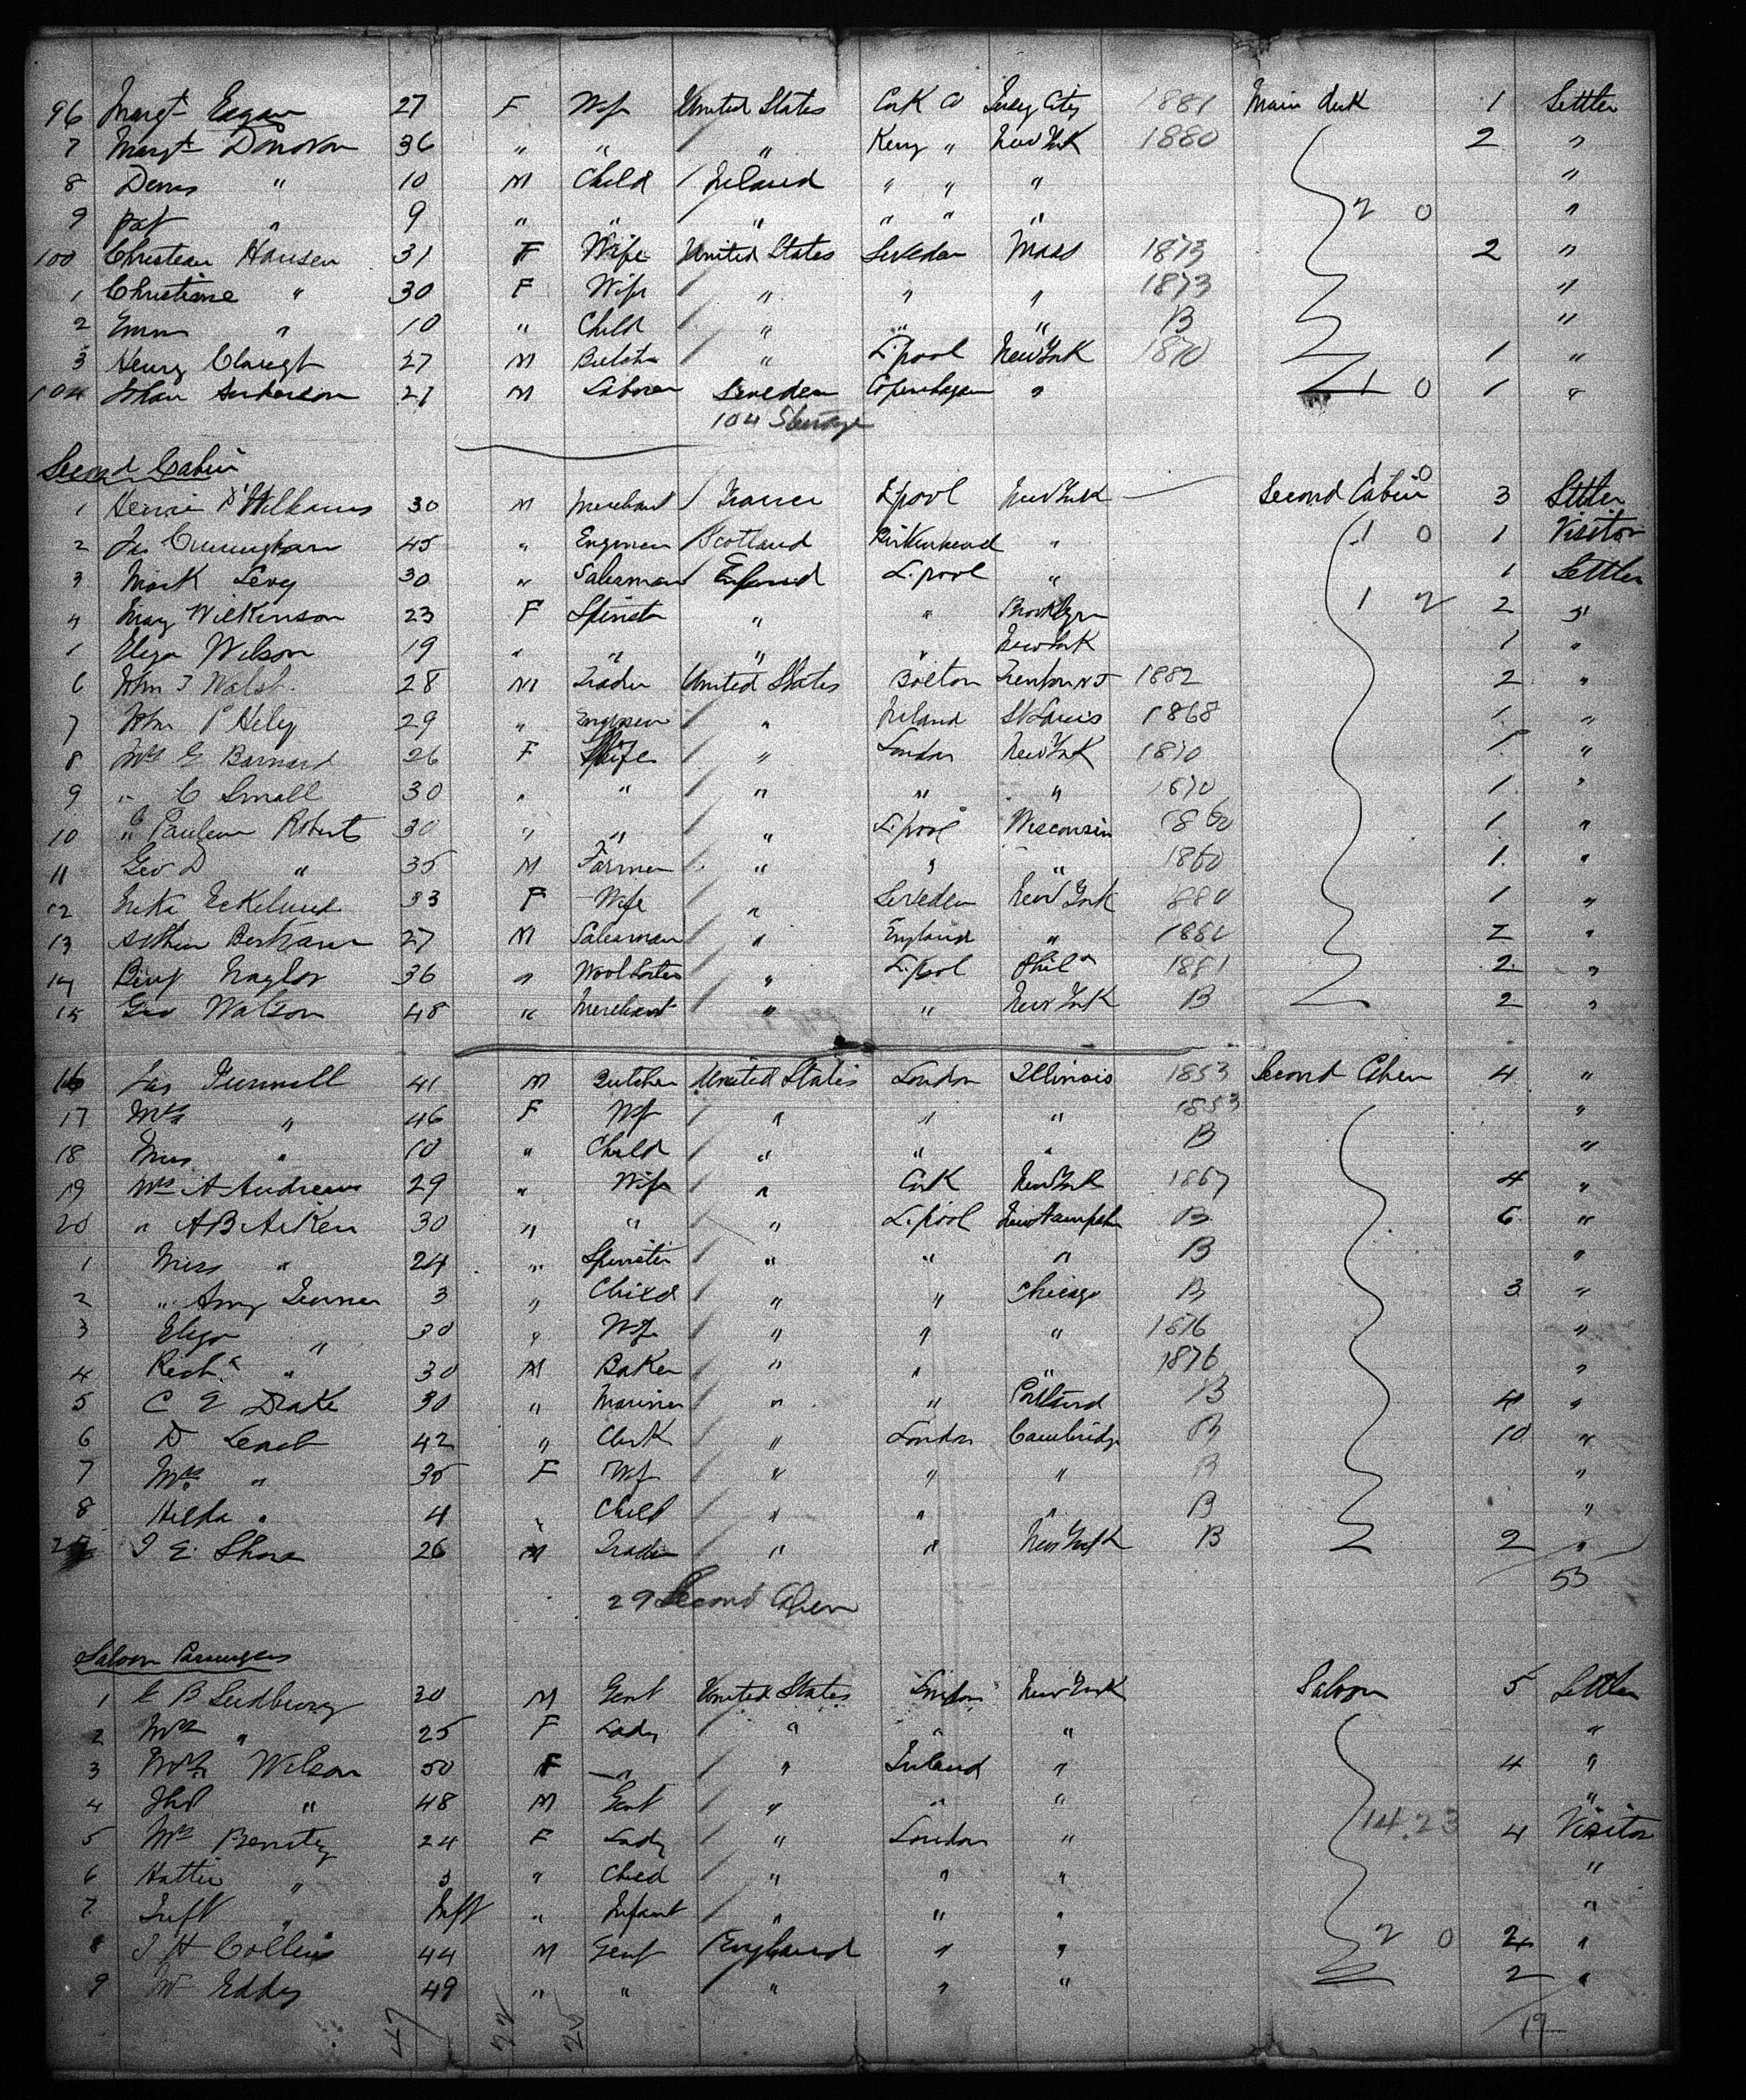 96 Margt Eagan 27 F Wife United States Cork Co Jersey City 1881 Main deck 1 Settler
7 Margt Donovan 36 " " " Kerry " New York 1880 2 "
8 Denis " 10 M Child Ireland " " " "
9 Pat " 9 " " " " " " 2 0 "
100 Christian Hansen 31 F Wife United States Sweden Mass 1873 2 "
1 Christine " 30 F Wife " " " 1873 "
2 Emma " 10 " Child " " " B "
3 Henry 27 M " L.pool New York 1870 1 "
104 Johan Anderson 27 M Laborer Sweden Copenhagen " 1 0 1 "
104 Steerage
Second Cabin
1 Henri D'Williams 30 M Merchant France L'pool New York Second Cabin 0 3 Settler
2 Jas Cunningham 45 " Engineer Scotland Birkenhead " 1 0 1 Visitor
3 Mark Levy 30 " Salesman England L.pool " 1 Settler
4 May Wilkinson 23 F Spinster " " Brooklyn 1 2 2 "
1 Eliza Wilson 19 " " " " New York 1 "
6 John J Walsh 28 M Trader United States Bolton Trenton NJ 1882 2 "
7 John P Hiley 29 " Engineer " Ireland St Louis 1868 1 "
8 Mrs G Barnard 26 F Wife " London New York 1870 1 "
9 " C Small 30 " " " " " 1870 1 "
10 " Pauline Roberts 30 " " " L.pool Wisconsin 1860 1 "
11 Geo D " 35 M Farmer " " " 1860 1 "
12 Eckelund 33 F Wife " Sweden New York 1880 1 "
13 Arthur Bertram 27 M Salesman " England " 188 2 "
14 Benj Naylor 36 " Wool Sorter " L.pool Phila 1881 2 "
15 Geo Watson 48 " Merchant " " New York B 2 "
16 Jas Tunnell 41 M Butcher United States London Illinois 1853 Second Cabin 4 "
17 Mrs " 46 F Wife " " " 1853 "
18 Miss " 10 " Child " " " B "
19 Mrs A Andrews 29 " Wife " Cork New York 1867 4 "
20 " A B Aiken 30 " " " L.pool New Hampshr B 6 "
1 Miss " 24 " Spinster " " " B "
2 " Amy Turner 3 " Child " " Chicago B 3 "
3 Eliza " 30 " Wife " " " 1876 "
4 Richd " 30 M Baker " " " 1876 "
5 C E Drake 30 " Mariner " " Portland B 4 "
6 D Leach 42 " Clerk " London Cambridge B 10 "
7 Mrs " 35 F Wife " " " B "
8 Hilda " 4 " Child " " " B "
29 J E Shore 26 M Trader " " New York B 2 "
53
29 Second Cabin
Saloon Passengers
1 C B Sudbury 30 M Gent United States London New York Saloon 5 Settler
2 Mrs " 25 F Lady " " " "
3 Mrs Wilson 50 F " " Ireland " 4 "
4 Jno " 48 M Gent " " " "
5 Mrs 24 F Lady " London " 14.23 4 Visitor
6 Hattie " 3 " Child " " " "
7 Inft " Inft " Infant " " " "
8 J H Collins 44 M Gent England " " 2 0 2 "
9 W Eddy 49 " " " " " 2 "
19